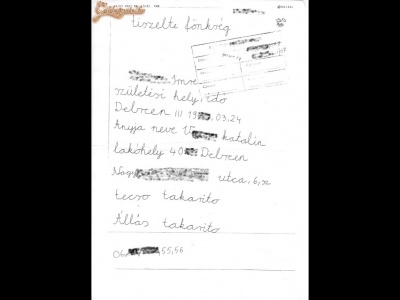 tiszelte fönkség
Imre
születesi hely, idö
Debrcen III 19 , 03.24
Anyja neve V katalin
lakóhely 40 Debrcen
Nagy utca, 6, sz
tecso takarito
Állás takarito
06 , 55, 56